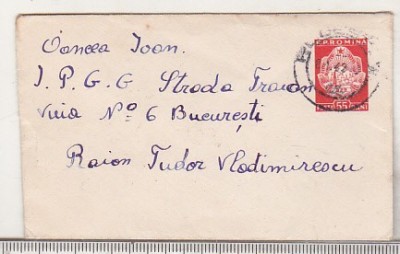 Oancea Ioan.
I. P. G. G Strada Traian
Vuia Nº 6 București
Raion Tudor Vlodimirescu
R.P.ROMINA
55